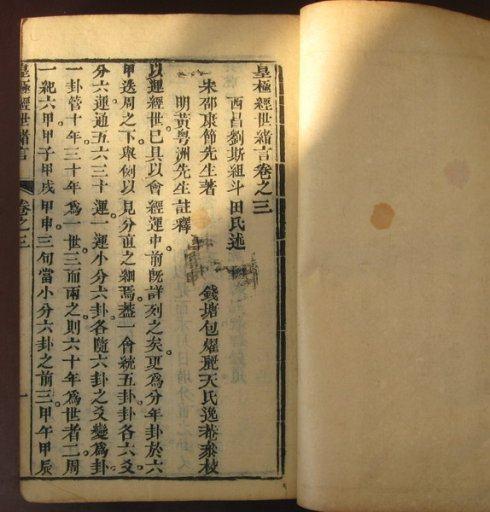 皇極經世緒言卷之三
西昌劉斯組斗田氏述
宋邵康節先生著
錢塘包燿麗天氏逸菴叅校
明黃粤洲先生註釋
以運經世巳具以會經運中前旣詳列之矣更爲分年卦於六
甲迭周之下舉例以見分直之細焉葢一會統五卦卦各六爻
分六運通五六三十運一運小分六卦各隨六卦之爻變爲卦
一卦管十年三十年爲一世三而兩之則六十年爲世者二周
一紀六甲甲子甲戌甲申三旬當小分六卦之前三甲午甲辰
皇極經世緒言
卷之三
一